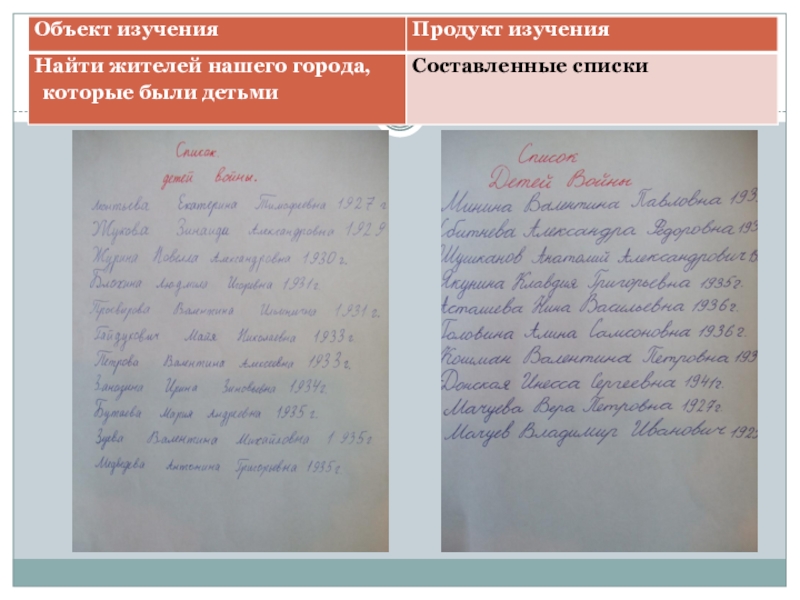 Объект изучения
Продукт изучения
Найти жителей нашего города,
которые были детьми
Составленные списки
Список
детей войны.
Екатерина Тимофеевна 1927 г
Жукова Зинаида Александровна 1929
Журина Новелла Александровна 1930 г.
Блохина Людмила Игоревна 1931 г.
Валентина Ильинична 1931 г.
Гайдукович Майя Николаевна 1933 г
Петрова Валентина Алексеевна 1933 г.
Ирина Зиновьевна 1934 г.
Бутаева Мария Андреевна 1935 г.
Зуева Валентина Михайловна 1935 г
Медведева Антонина Григорьевна 1935 г.
Список
Детей Войны
Минина Валентина Павловна 193
Сбитнева Александра Фёдоровна 193
Шушканов Анатолий Александрович
Якунина Клавдия Григорьевна 1935г.
Асташева Нина Васильевна 1936г.
Головина Алина Самсоновна 1936 г.
Кошман Валентина Петровна 193
Донская Инесса Сергеевна 1941г.
Мачуева Вера Петровна 1927г.
Мачуев Владимир Иванович 192